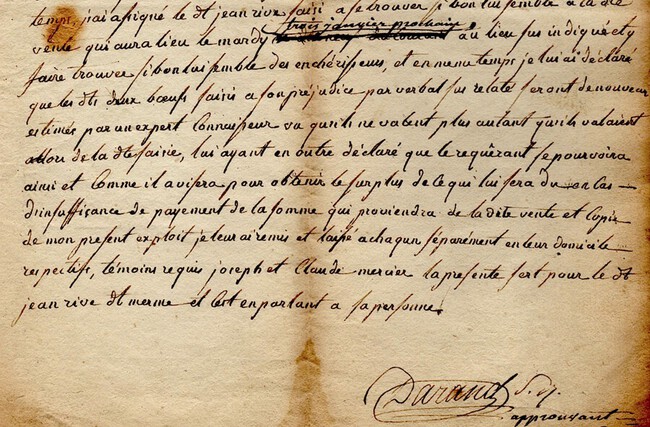 temps, j'ai assigné le dt jean rive saisi a se trouver si bon lui semble a la dte
trois janvier prochain
vente qui aura lieu le mardy au lieu sus indiqué et y
faire trouver si bon lui semble des enchérisseurs, et en meme temps je lui ai déclaré
que les dts deux bœufs saisis a son préjudice par verbal sus relaté seront de nouveau
estimés par un expert connaisseur vu qu'ils ne valent plus autant qu'ils valaient
allors de la dte saisie, lui ayant en outre déclaré que le requérant se pourvoira
ainsi et comme il avisera pour obtenir le surplus de ce qui lui sera du en cas
d'insuffisance de payement de la somme qui proviendra de la dite vente et copie
de mon present exploit je leur ai remis et laissé a chaqun séparément en leur domicile
respectifs, témoins requis joseph et Claude mercier la presente sert pour le dt
jean rive dt merme et c'est en parlant a sa personne.
Darand
approuvant